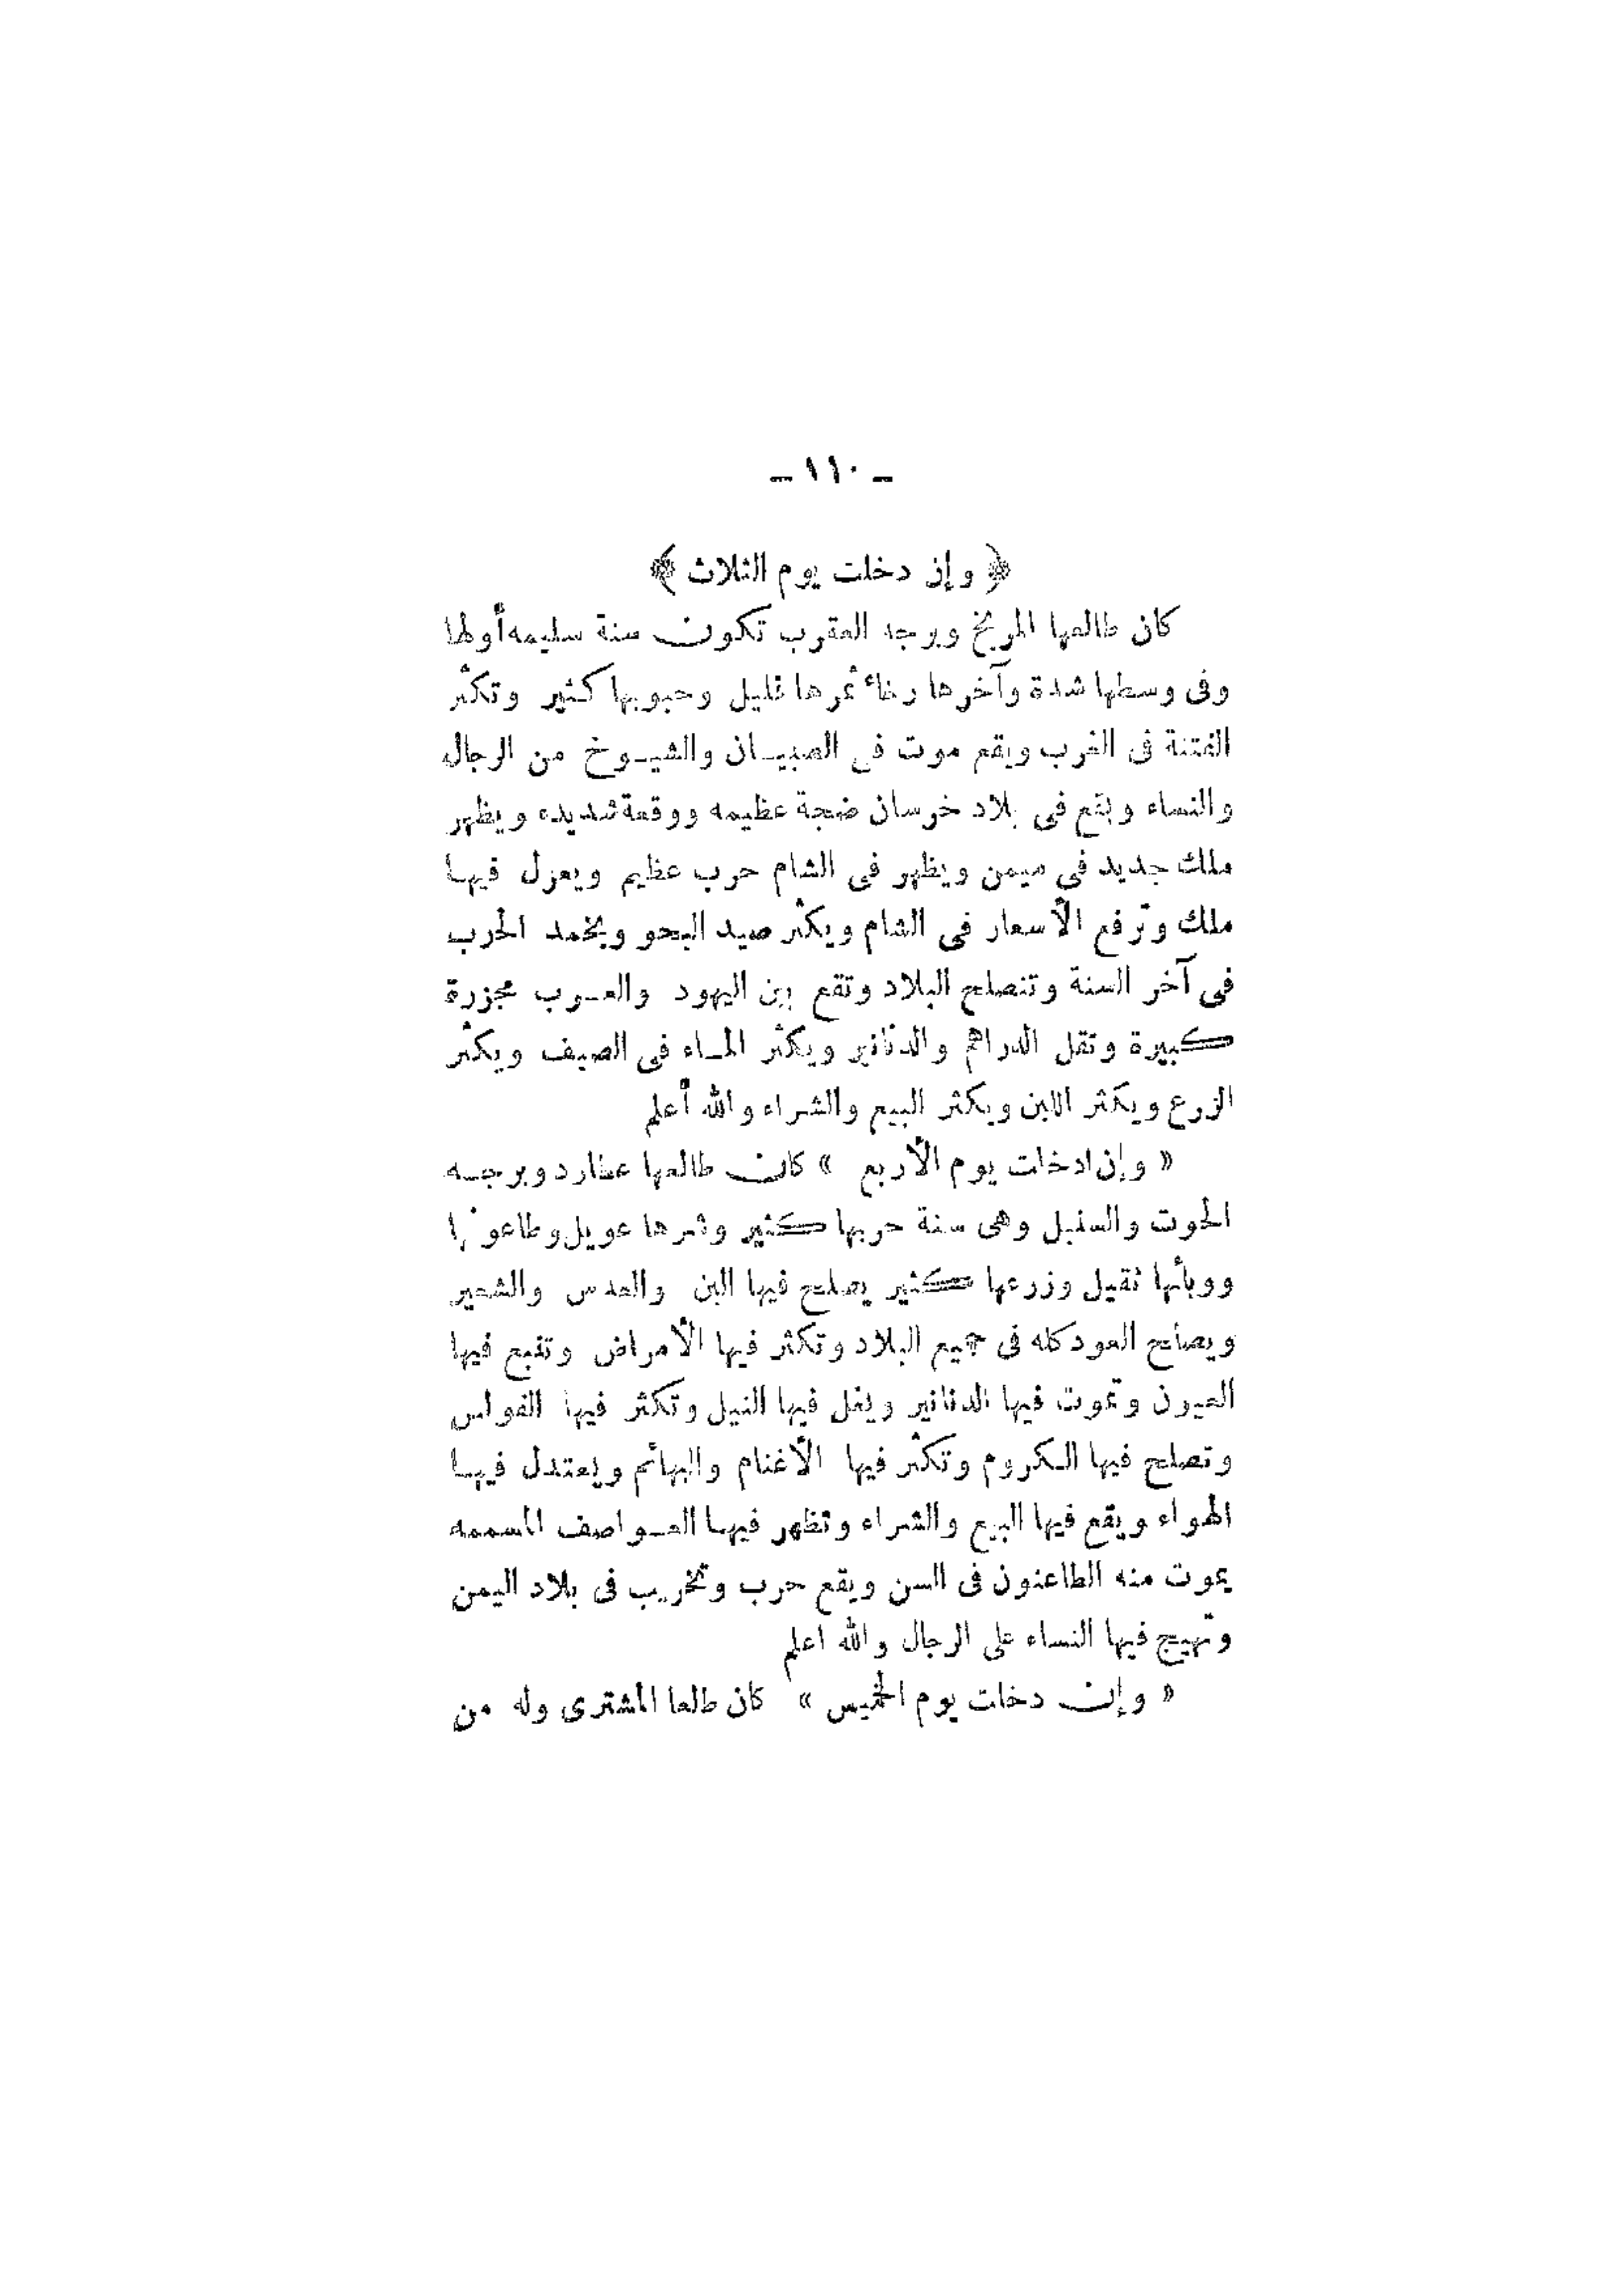 ـ ١١٠ ـ
﴿ وإن دخلت يوم الثلاث ﴾
كان طالعها المريخ وبرجه العقرب تكون سنة سليمه أولها
وفى وسطها شدة وآخرها رخاء ثمرها قليل وحبوبها كثير وتكثر
الفتنة فى الغرب ويقع موت فى الصبيان والشيوخ من الرجال
والنساء ويقع فى بلاد خرسان ضجة عظيمه ووقعة شديده ويظهر
ملك جديد فى ميمن ويظهر فى الشام حرب عظيم ويعزل فيها
ملك وترفع الأسعار فى الشام ويكثر صيد البحو ويخمد الحرب
فى آخر السنة وتنصلح البلاد وتقع بين اليهود والعرب مجزرة
كبيرة وتقل الدراهم والدنانير ويكثر الماء فى الصيف ويكثر
الزرع ويكثر اللبن ويكثر البيع والشراء والله أعلم
« وإن ادخلت يوم الأربع » كان طالعها عطارد وبرجه
الحوت والسنبل وهى سنة حربها كثير وثمرها عويل
ووبأها ثقيل وزرعها كثير يصلح فيها البن والعدس والشعير
ويصلح العود كله فى جميع البلاد وتكثر فيها الأمراض وتنبع فيها
العيرون وتموت فيها الدنانير ويغل فيها النيل وتكثر فيها الفواس
وتصلح فيها الكروم وتكثر فيها الأغنام والبهائم ويعتدل فيها
الهواء ويقع فيها البيع والشراء وتظهر فيها العواصف المسممه
يموت منه الطاعنون فى السن ويقع حرب وتخريب فى بلاد اليمن
وتهيج فيها النساء على الرجال والله اعلم
« وإن دخلت يوم الخميس » كان طالعا المشترى وله من